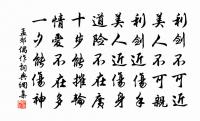 利劍不可近
美人不可親
利劍近傷手
美人近傷身
道險不在廣
十步能摧輪
情愛不在多
一夕能傷神
孟郊偶作詞典網集